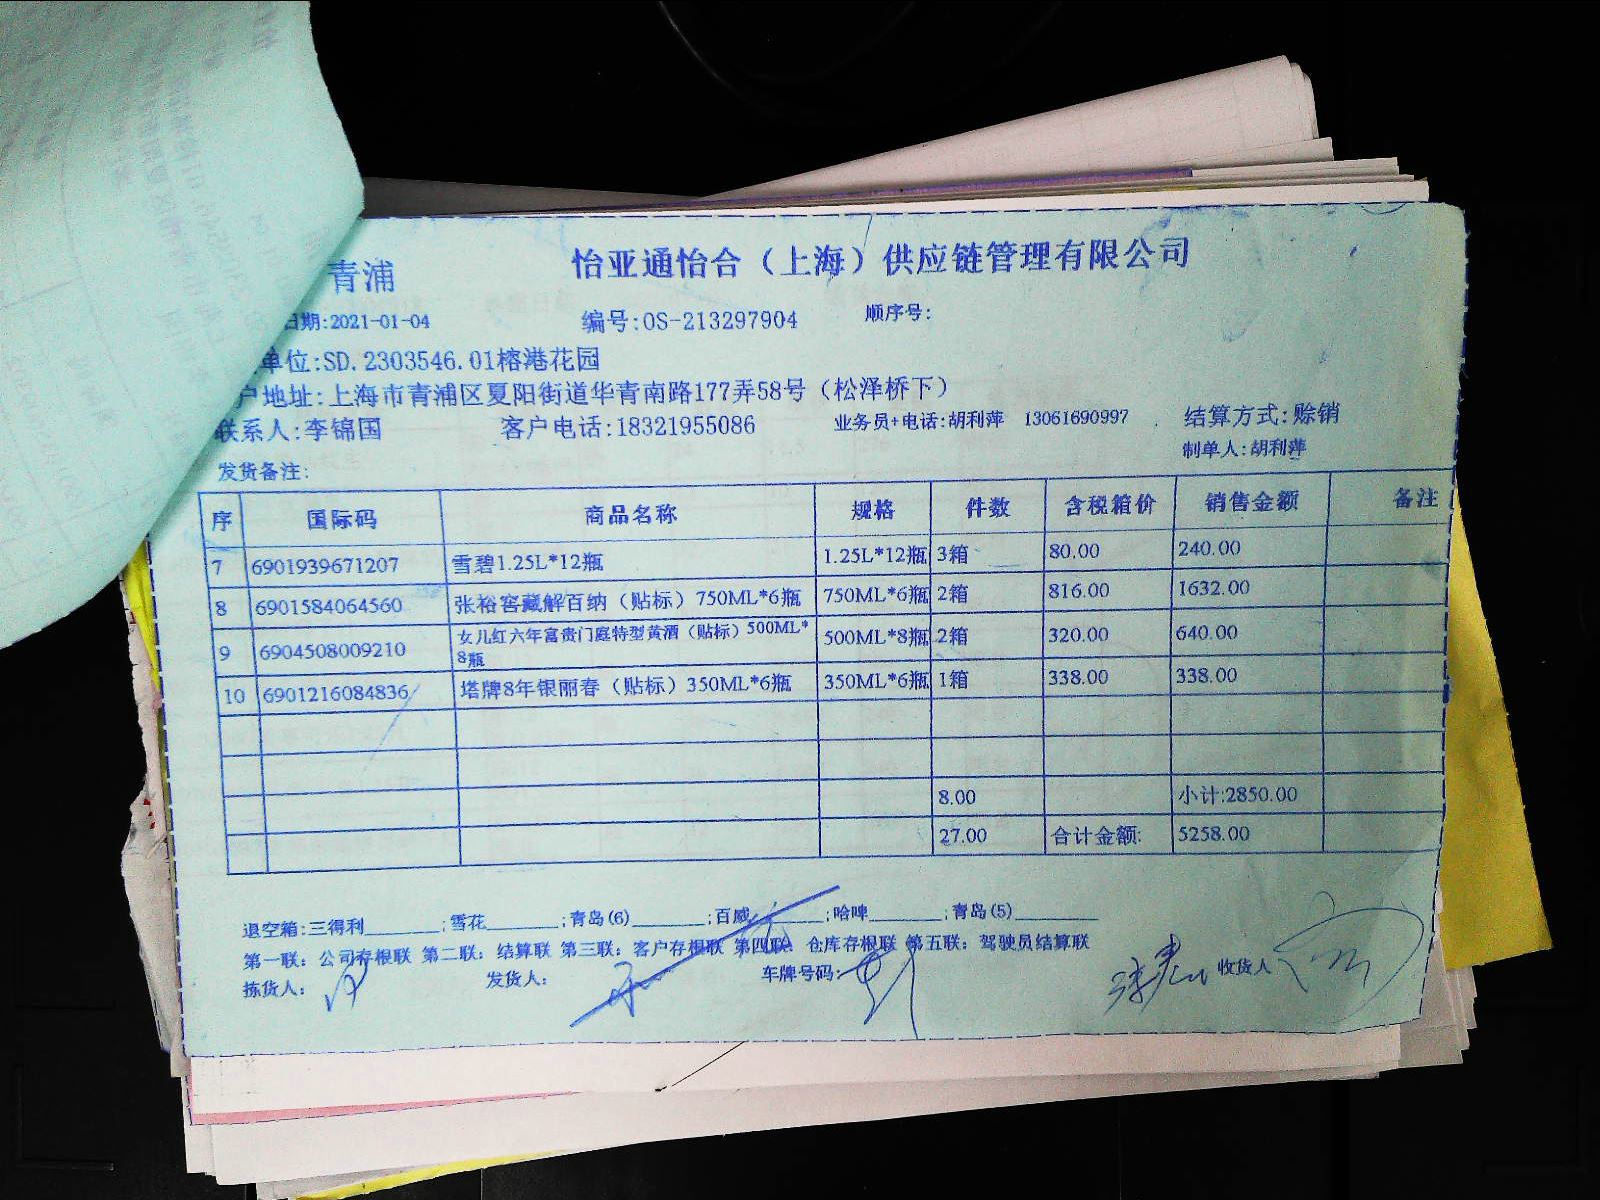 怡亚通怡合（上海）供应链管理有限公司
青浦
日期:2021-01-04 编号:OS-213297904 顺序号:
单位:SD.2303546.01榕港花园
户地址:上海市青浦区夏阳街道华青南路177弄58号（松泽桥下）
联系人:李锦国 客户电话:18321955086 业务员+电话:胡利萍 13061690997 结算方式:赊销
制单人:胡利萍
发货备注:
序 国际码 商品名称 规格 件数 含税箱价 销售金额 备注
7 6901939671207 雪碧1.25L*12瓶 1.25L*12瓶 3箱 80.00 240.00
8 6901584064560 张裕窖藏解百纳（贴标）750ML*6瓶 750ML*6瓶 2箱 816.00 1632.00
9 6904508009210 女儿红六年富贵门庭特型黄酒（贴标）500ML*8瓶 500ML*8瓶 2箱 320.00 640.00
10 6901216084836 塔牌8年银丽春（贴标）350ML*6瓶 350ML*6瓶 1箱 338.00 338.00
8.00 小计:2850.00
27.00 合计金额: 5258.00
退空箱:三得利_______;雪花_______;青岛(6)_______;百威_______;哈啤_______;青岛(5)_________
第一联：公司存根联 第二联：结算联 第三联：客户存根联 第四联：仓库存根联 第五联：驾驶员结算联
拣货人: 发货人: 车牌号码: 收货人